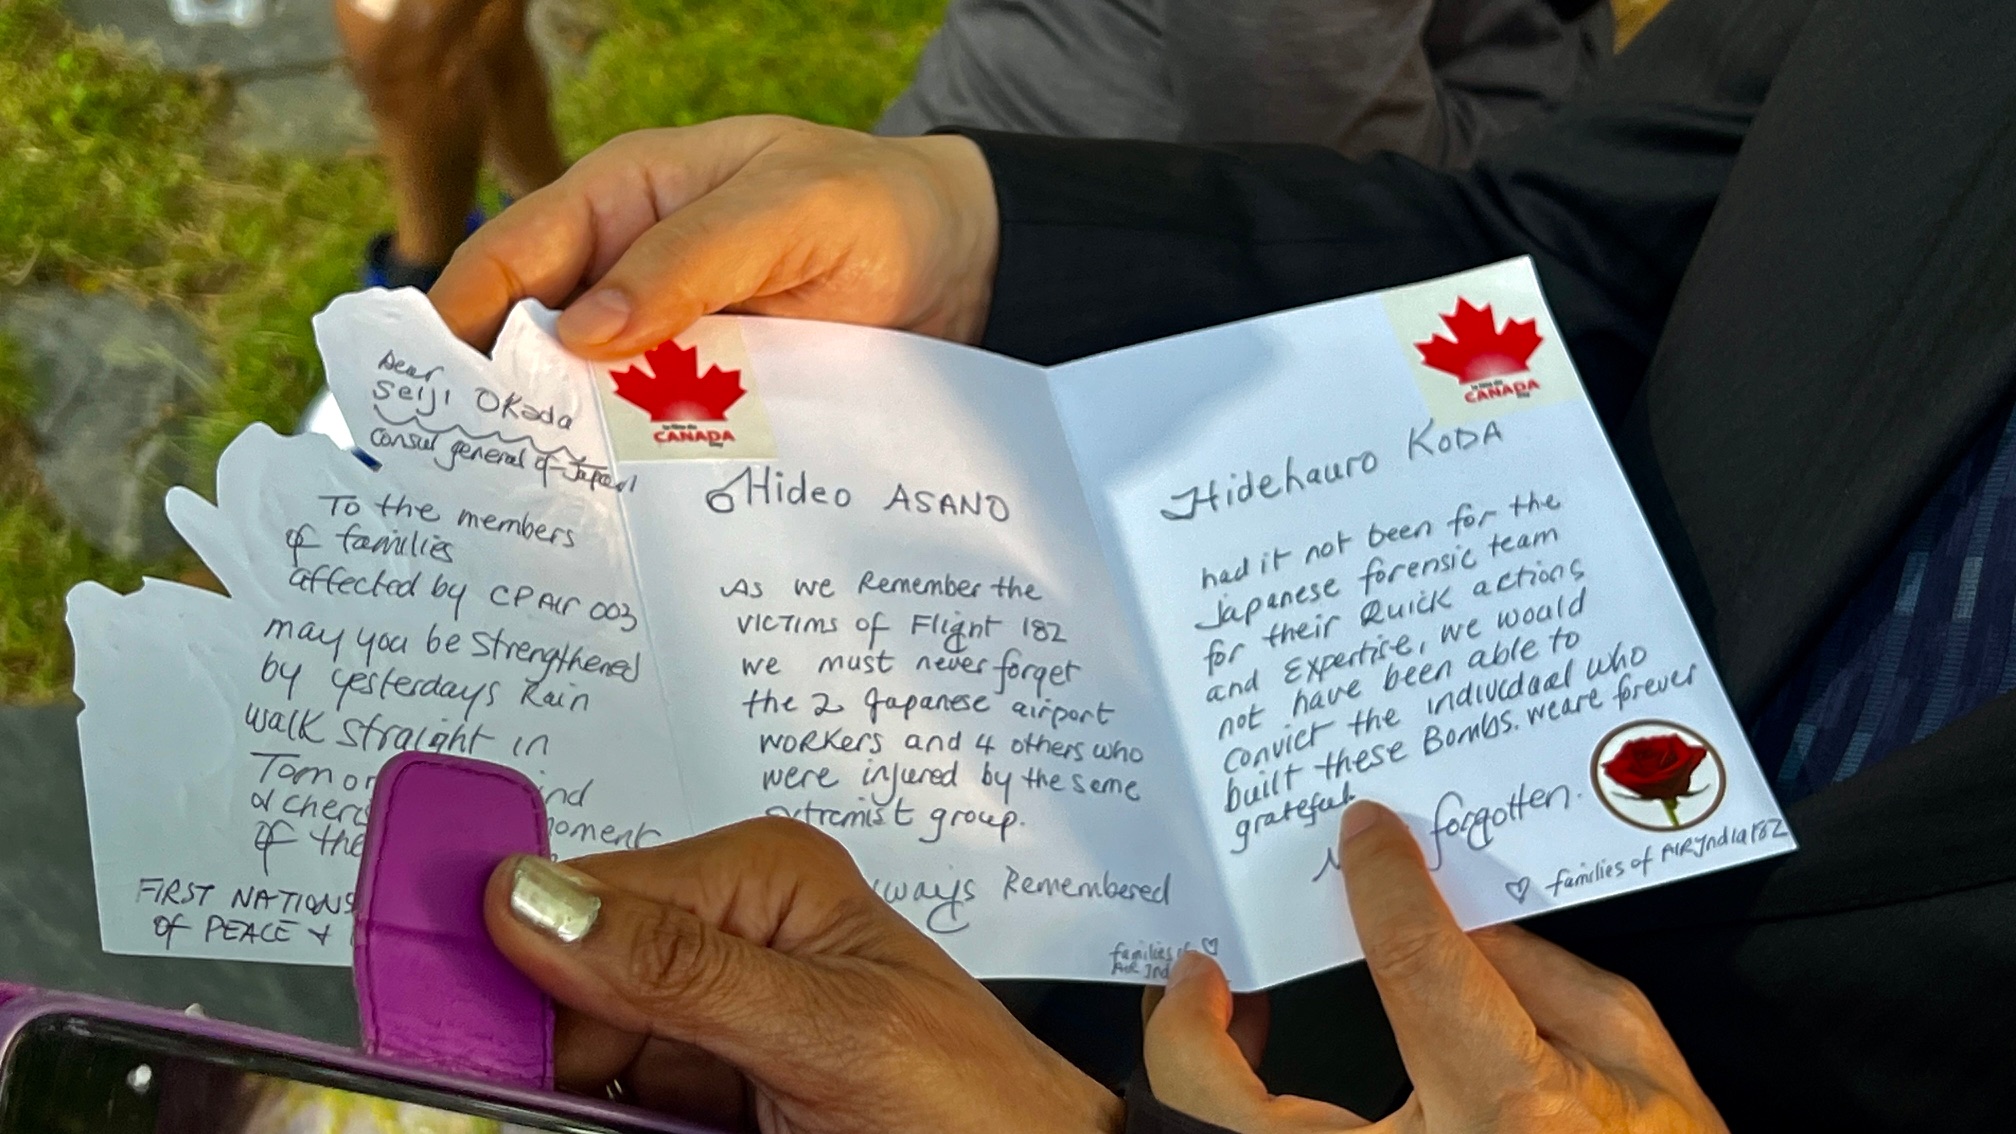 Dear
Seiji Okada
Consul general of Japan
To the members
of families
affected by CPAIR 003
may you be strengthened
by yesterdays Rain
walk straight in
Tomor ind
& cheri moment
of the
FIRST NATIONS
OF PEACE +
CANADA
Hideo ASANO
As we Remember the
VICTIMS of Flight 182
we must never forget
the 2 Japanese airport
workers and 4 others who
were injured by the same
extremist group.
ways Remembered
families of ♡
AIR Ind
CANADA
Hidehauro KODA
had it not been for the
Japanese forensic team
for their Quick actions
and Expertise, we would
not have been able to
convict the individual who
built these Bombs. we are forever
grateful.
forgotten.
♡ families of AIR India 182